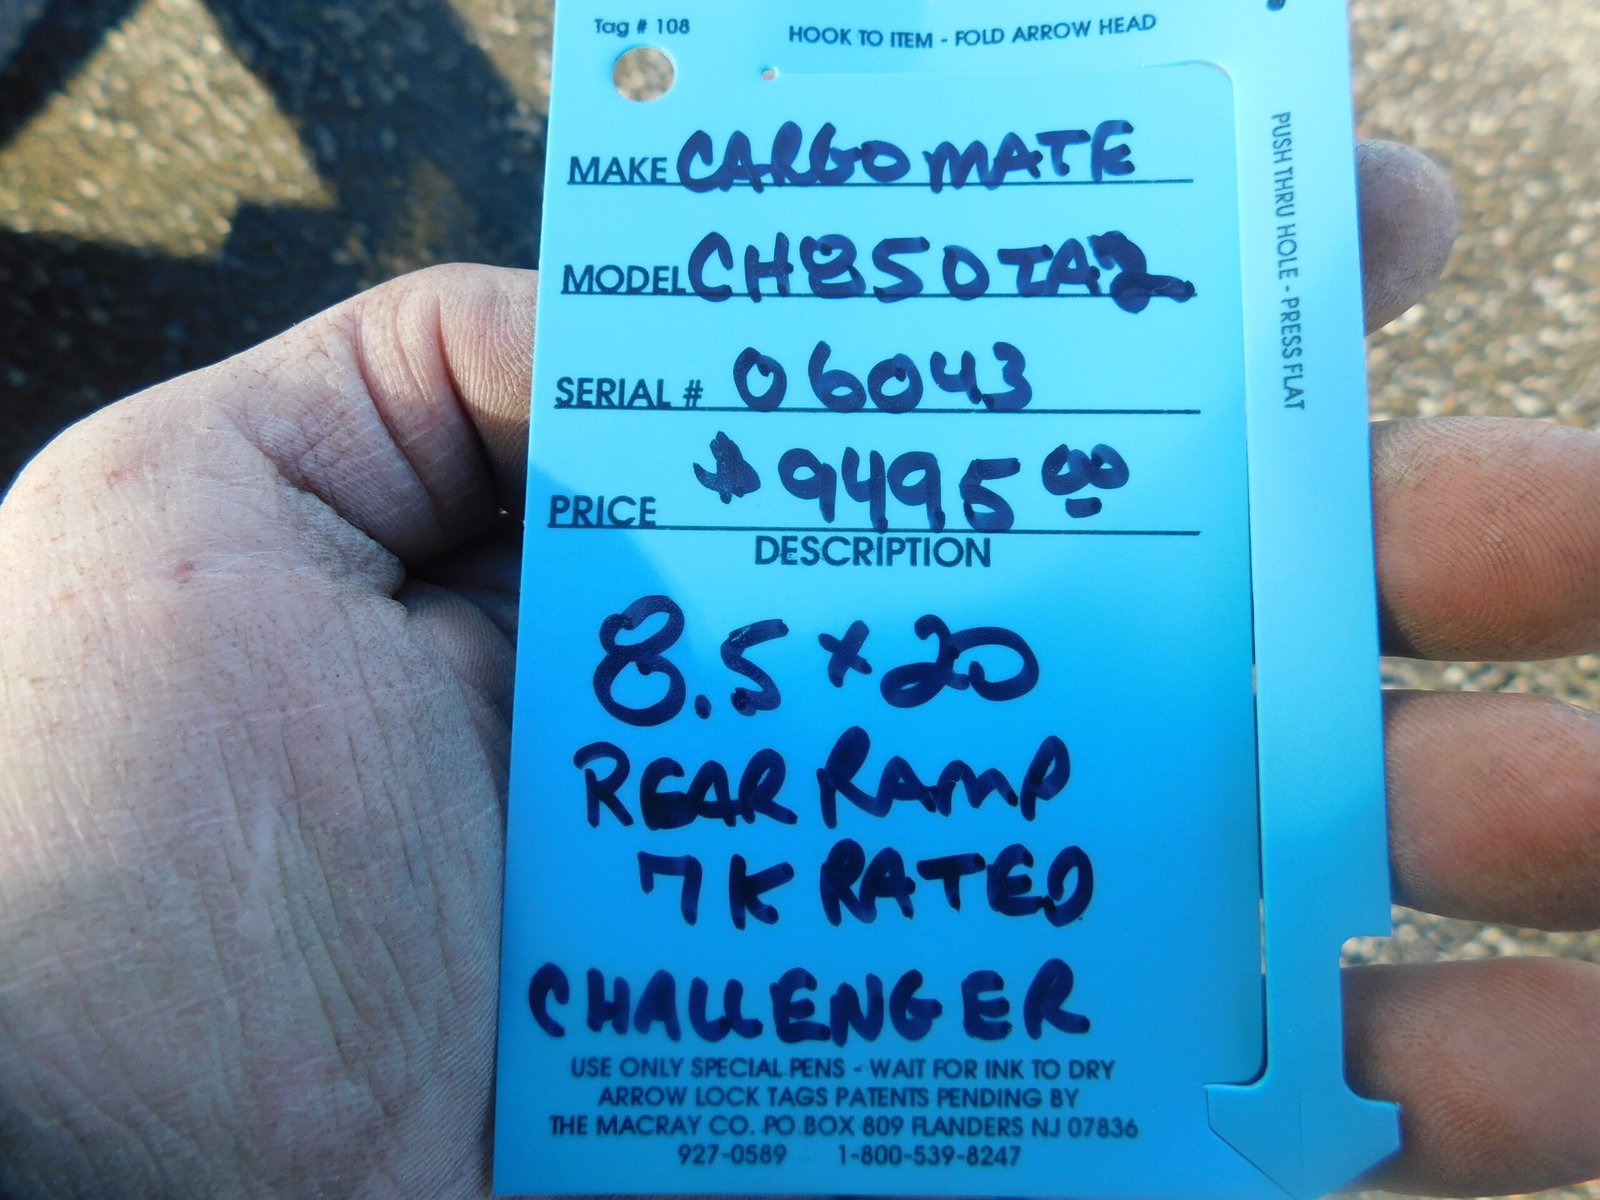 Tag # 108
HOOK TO ITEM - FOLD ARROW HEAD
PUSH THRU HOLE - PRESS FLAT
MAKE CARGO MATE
MODEL CH850TA2
SERIAL # 06043
PRICE $9495.00
DESCRIPTION
8.5 x 20
REAR RAMP
7K RATED
CHALLENGER
USE ONLY SPECIAL PENS - WAIT FOR INK TO DRY
ARROW LOCK TAGS PATENTS PENDING BY
THE MACRAY CO. PO BOX 809 FLANDERS NJ 07836
927-0589 1-800-539-8247